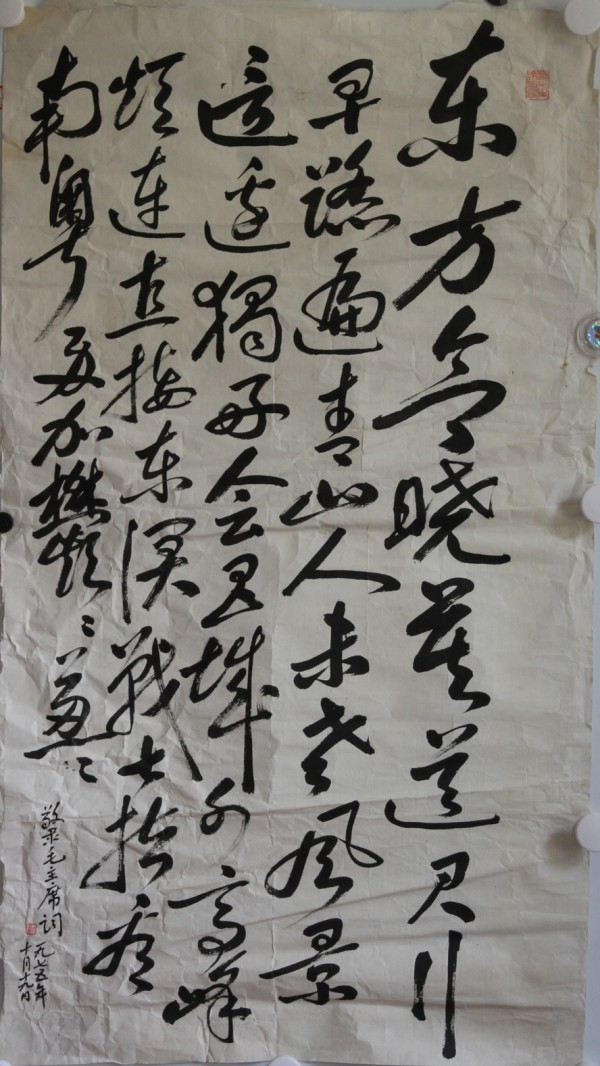 东方欲晓莫道君行
早踏遍青山人未老风景
这边獨好会昌城外高峰
颠连直接东溟战士指看
南粤更加欝々葱々
敬录毛主席词
一九七五年
十月十九日